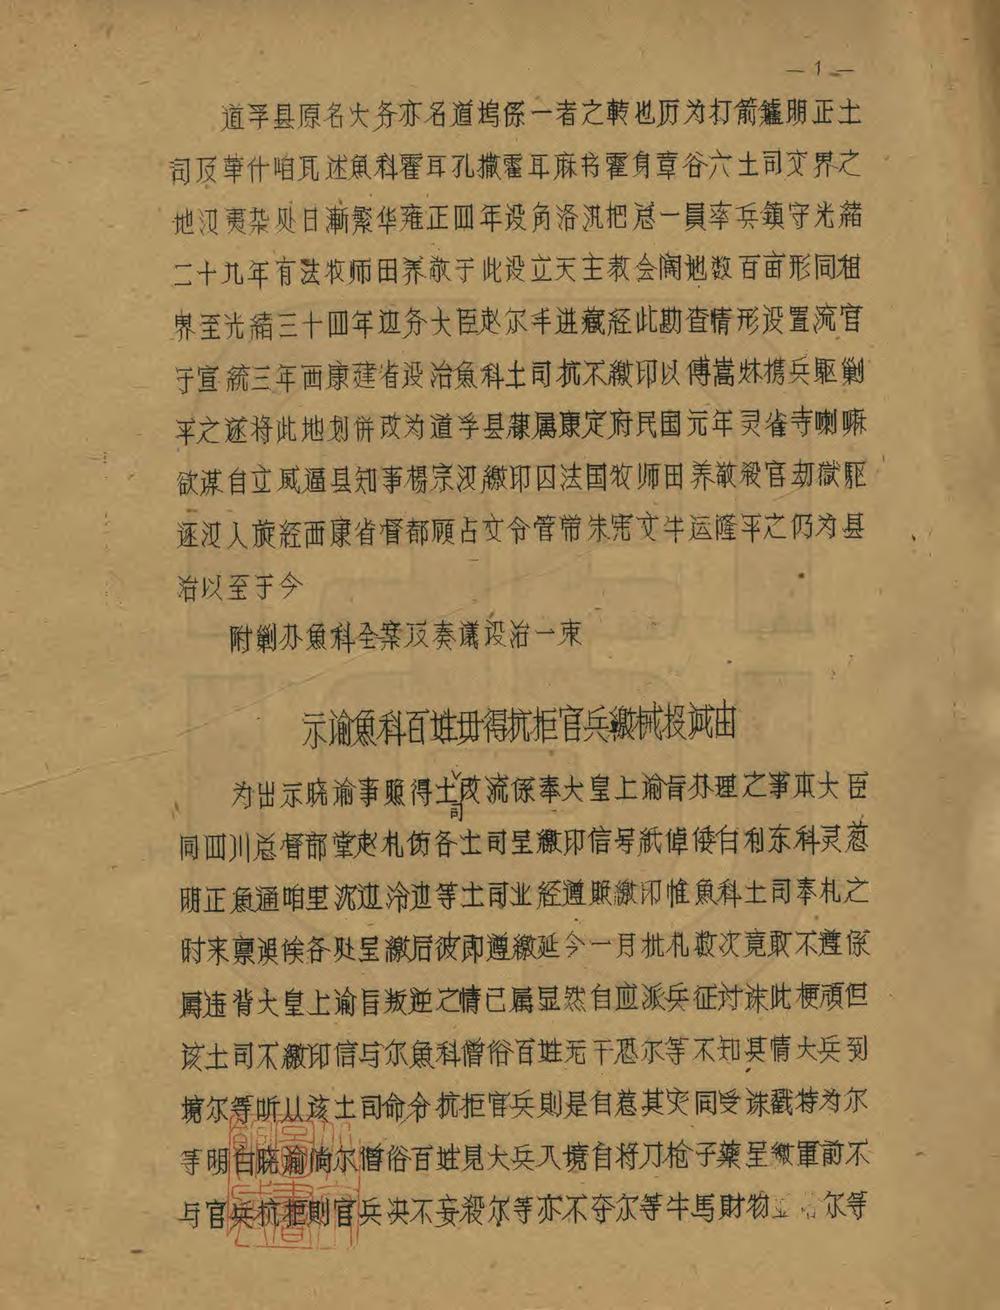 —1—
道孚县原名大务亦名道坞係一者之轉也历为打箭鑪明正土
司及革什咱瓦述魚科霍耳孔撒霍耳麻书霍身章谷六土司交界之
地汉夷杂处日漸繁华雍正四年设角洛汛把总一員率兵鎮守光緒
二十九年有法牧师田养敬于此设立天主教会阔地数百亩形同租
界至光緒三十四年边务大臣赵尔丰进藏経此勘查情形设置流官
于宣統三年西康建省设治魚科土司抗不繳印以傅嵩炑携兵駆剿
平之遂将此地划併改为道孚县隸属康定府民国元年灵雀寺喇嘛
欲谋自立威逼县知事楊宗汉繳印囚法国牧师田养敬殺官劫獄駆
逐汉人旋経西康省督都顾占文令管带朱宪文牛运隆平之仍为县
治以至于今
附剿办魚科全案及奏议设治一束
示谕魚科百姓毋得抗拒官兵繳械投诚由
为出示晓谕事照得土司改流係奉大皇上谕旨办理之事本大臣
同四川总督部堂赵札饬各土司呈繳印信号紙倬倭白利东科灵葱
明正魚通咱里沈边冷边等土司业経遵照繳印惟魚科土司奉札之
时来禀误候各处呈繳后彼即遵繳延今一月批札数次竟敢不遵係
属违背大皇上谕旨叛逆之情已属显然自应派兵征讨诛此梗頑但
该土司不繳印信与尔魚科僧俗百姓无干恐尔等不知其情大兵到
境尔等听从该土司命令抗拒官兵則是自惹其灾同受诛戳特为尔
等明白晓谕倘尔僧俗百姓見大兵入境自将刀枪子藥呈繳軍前不
与官兵抗拒則官兵决不妄殺尔等亦不夺尔等牛馬財物尔等